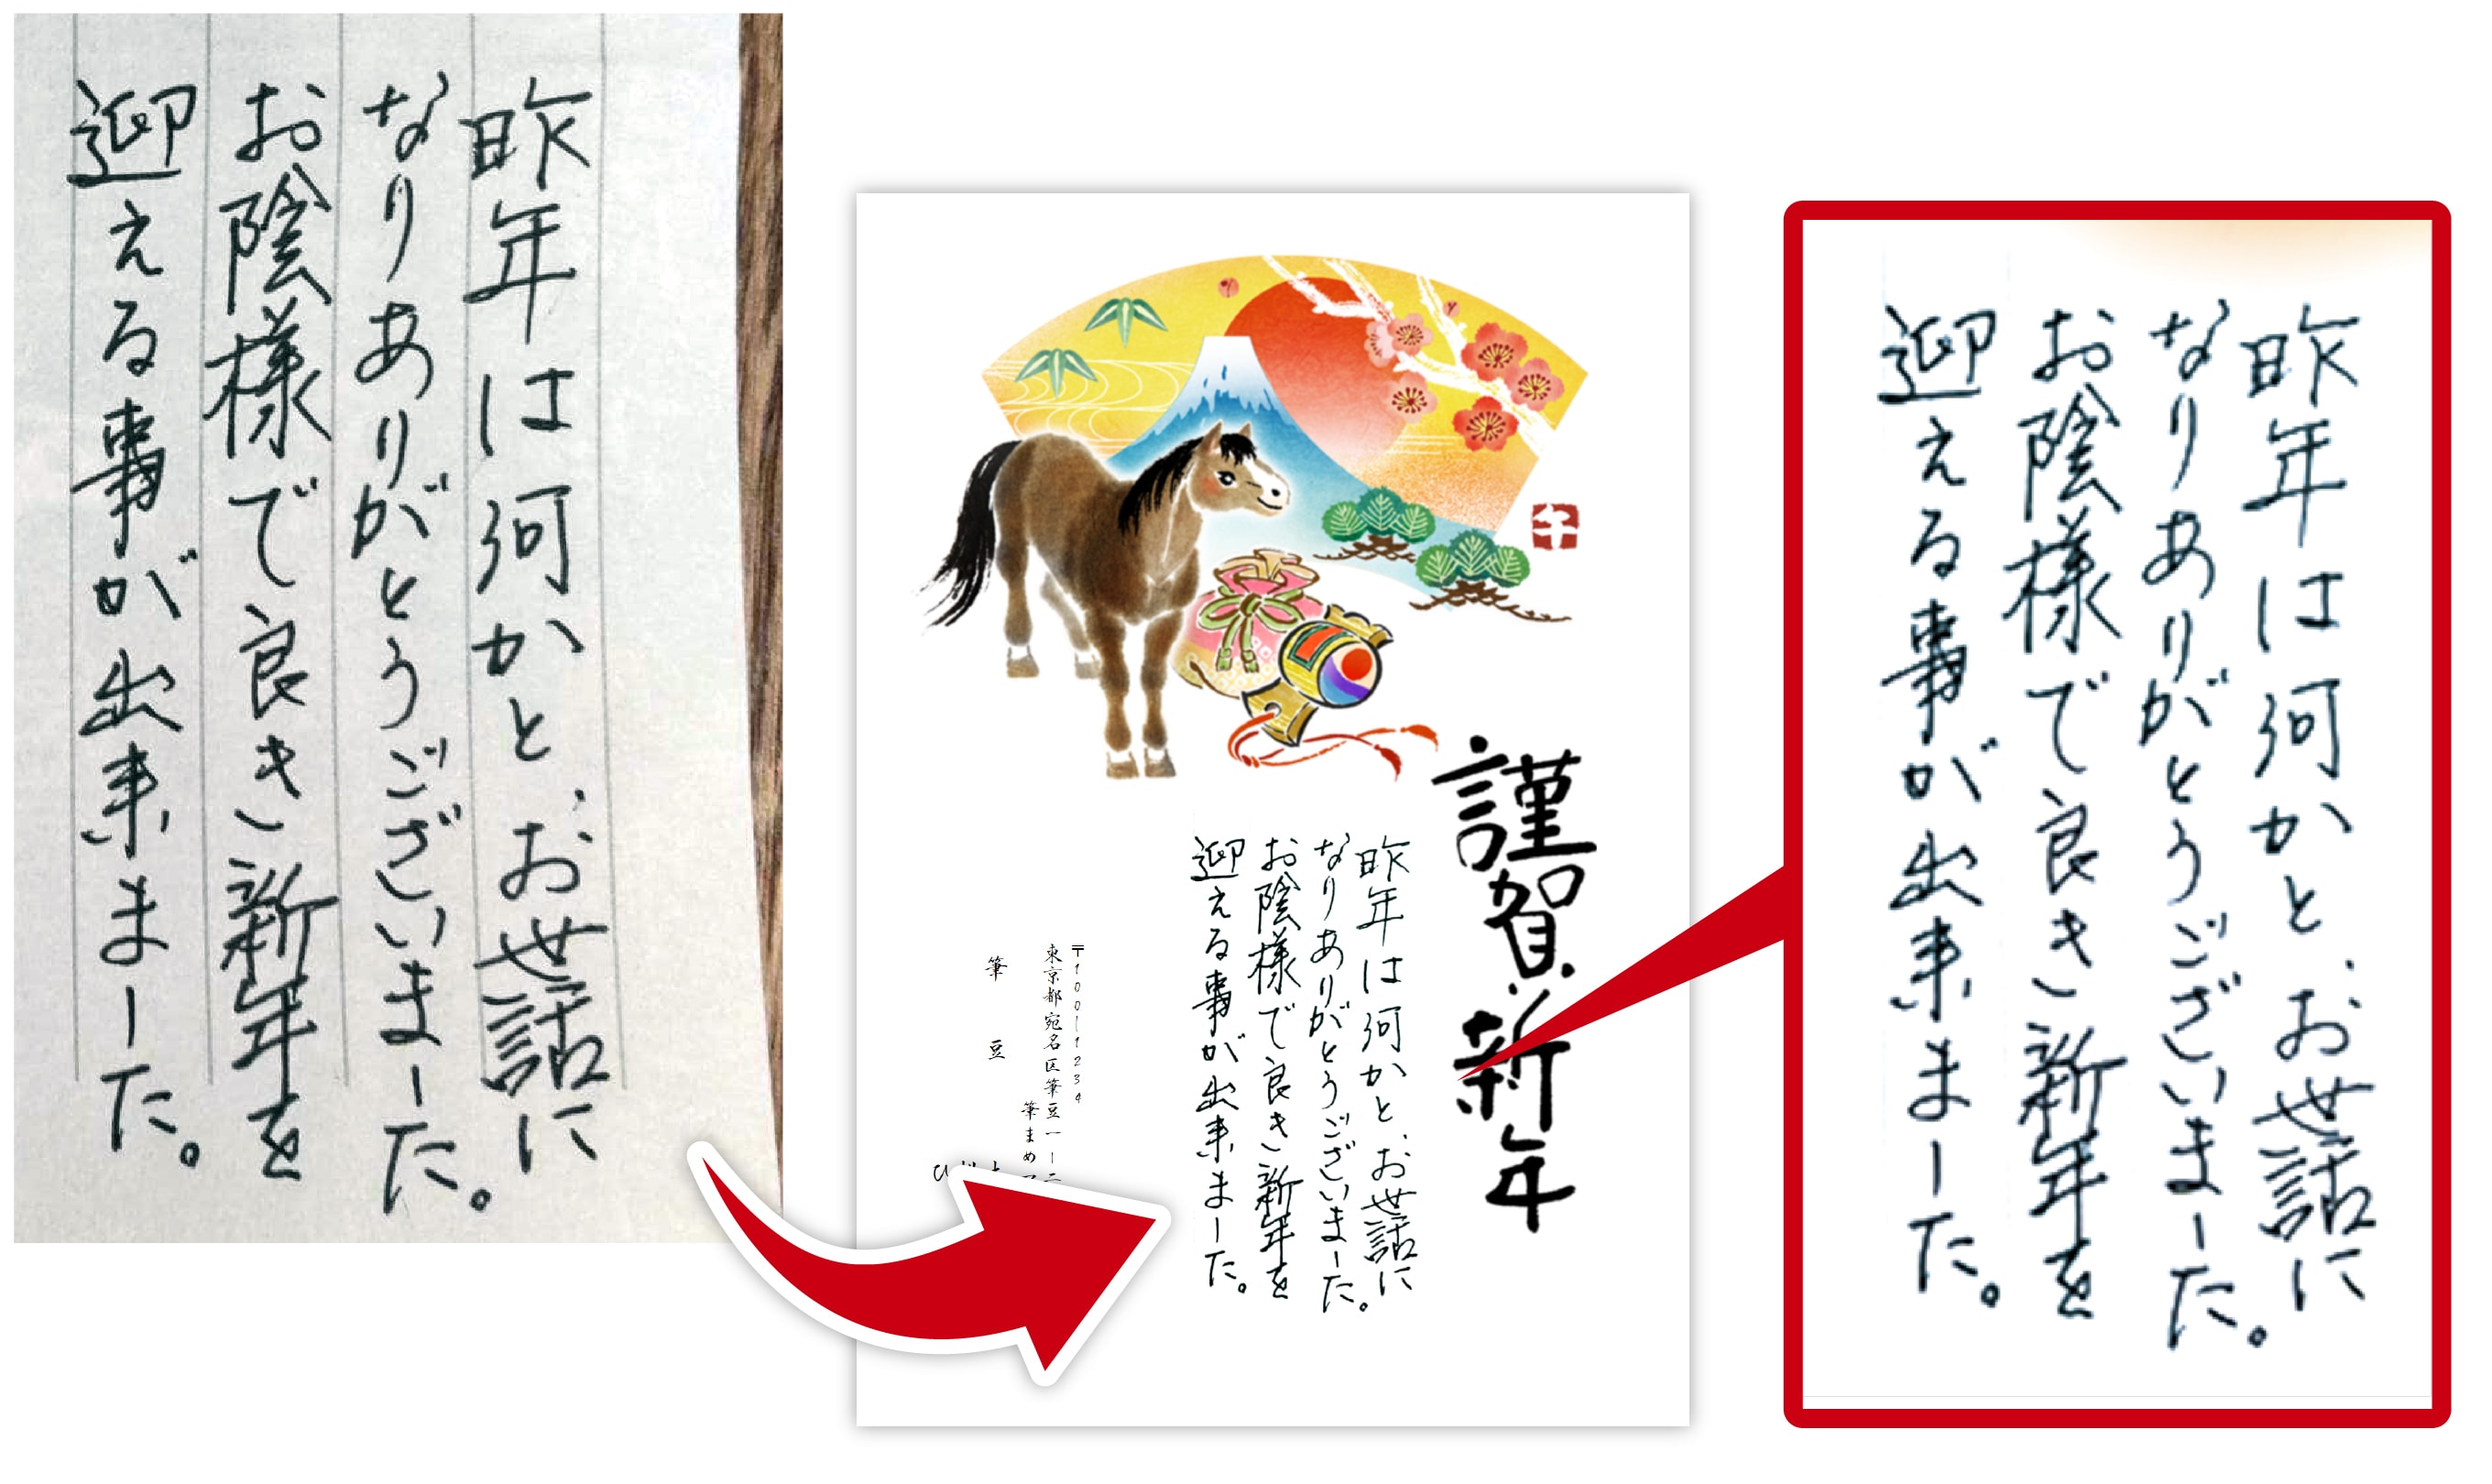 昨年は何かとお世話に
なりありがとうございました。
お陰様で良き新年を
迎える事が出来ました。
午
謹賀新年
昨年は何かとお世話に
なりありがとうございました。
お陰様で良き新年を
迎える事が出来ました。
〒100-1234
東京都宛名区筆豆一-二
筆まめ
筆豆
昨年は何かとお世話に
なりありがとうございました。
お陰様で良き新年を
迎える事が出来ました。